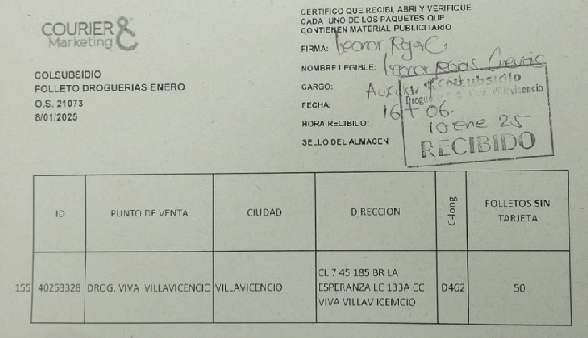 COURIER &
Marketing
COLSUBSIDIO
FOLLETO DROGUERIAS ENERO
O.S. 21073
8/01/2025
CERTIFICO QUE RECIBI, ABRI Y VERIFIQUE
CADA UNO DE LOS PAQUETES QUE
CONTIENEN MATERIAL PUBLICITARIO
FIRMA: Leonor Rojas C
NOMBRE LEGIBLE: Leonor Rojas Cuevas
CARGO:
FECHA:
HORA RECIBILO: 16+06
SELLO DEL ALMACEN
Colsubsidio
Villavicencio
10 ene 25
RECIBIDO
ID PUNTO DE VENTA CIUDAD DIRECCION C-long FOLLETOS SIN TARJETA
155 40253328 DROG. VIVA VILLAVICENCIO VILLAVICENCIO CL 7 45 185 BR LA
ESPERANZA LC 133A CC
VIVA VILLAVICEMCIO
D4G2 50